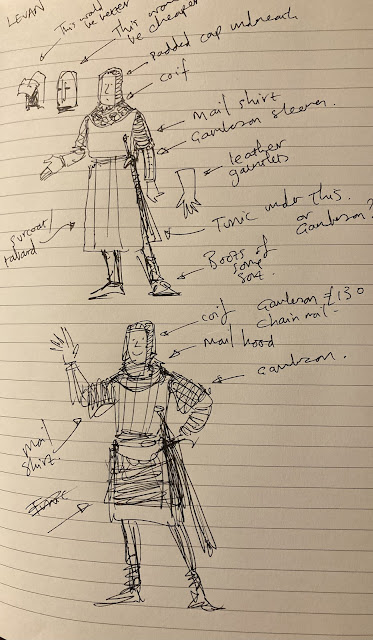 LEVAN
This would
be better
This would
be cheaper
padded cap underneath
coif
Mail shirt
Gambeson sleeves.
leather
gauntlets
Tunic under this.
or
Gambeson?
surcoat
tabard
Boots of
some
sort.
coif
Gambeson £130
chain mail -
Mail hood
gambeson.
Mail
shirt